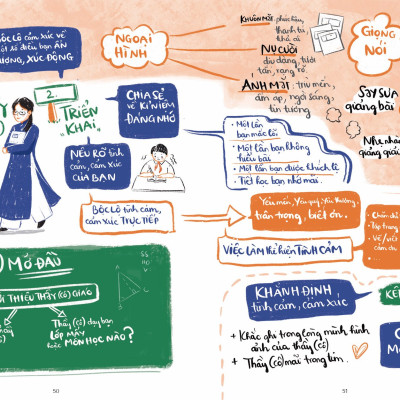 BỘC LỘ cảm xúc về
điều bạn ẤN
TƯỢNG, XÚC ĐỘNG
NGOẠI
HÌNH
KHUÔN MẶT: phúc hậu,
thanh tú,
khả ái
NỤ CƯỜI
dịu dàng, tươi
tắn, rạng rỡ
ÁNH MẮT: trìu mến,
ấm áp, ngời sáng,
tin tưởng
GIỌNG
NÓI
SAY SƯA
giảng bài
Nhẹ nhàng
giảng giải
2.
TRIỂN
KHAI
CHIA SẺ
về KỈ NIỆM
ĐÁNG NHỚ
• Một lần
bạn mắc lỗi
• Một lần bạn không
hiểu bài
• Một lần bạn được khích lệ
• Tiết học bạn nhớ mãi.
NÊU RÕ tình
cảm, cảm xúc
CỦA BẠN
BỘC LỘ tình cảm,
cảm xúc TRỰC TIẾP
Yêu mến, yêu quý, yêu thương,
trân trọng, biết ơn.
VIỆC LÀM thể hiện TÌNH CẢM
MỞ ĐẦU
THIỆU THẦY (CÔ) GIÁO
Thầy (cô) dạy bạn
LỚP MẤY
hoặc MÔN HỌC NÀO?
KHẲNG ĐỊNH
tình cảm, cảm xúc
+ Khắc ghi trong lòng mình hình
ảnh của thầy (cô)
+ Thầy (cô) mãi trong tim.
50
51